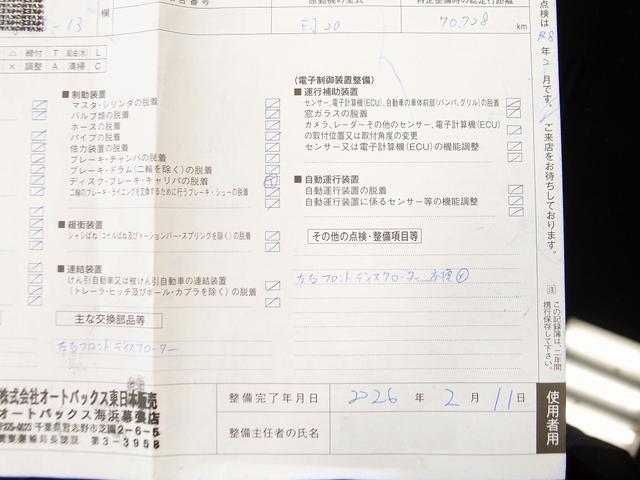 原動機の型式
特定整備時の総走行距離
欄
EJ20
70,728 km
△ 締付 T 給油(水) L
× 調整 A 清掃 C
■ 制動装置
マスタ・シリンダの脱着
バルブ類の脱着
ホースの脱着
パイプの脱着
倍力装置の脱着
ブレーキ・チャンバの脱着
ブレーキ・ドラム(二輪を除く)の脱着
ディスク・ブレーキ・キャリパの脱着
二輪のブレーキ・ライニングを交換するために行うブレーキ・シューの脱着
■ 緩衝装置
シャシばね(コイルばね及びトーションバー・スプリングを除く)の脱着
■ 連結装置
けん引自動車又は被けん引自動車の連結装置
(トレーラ・ヒッチ及びボール・カプラを除く)の脱着
主な交換部品等
左右フロントディスクローター
(電子制御装置整備)
■ 運行補助装置
センサー、電子計算機(ECU)、自動車の車体前部(バンパ、グリル)の脱着
窓ガラスの脱着
カメラ、レーダーその他のセンサー、電子計算機(ECU)
の取付位置又は取付角度の変更
センサー又は電子計算機(ECU)の機能調整
■ 自動運行装置
自動運行装置の脱着
自動運行装置に係るセンサー等の機能調整
その他の点検・整備項目等
左右フロントディスクローター
点検は
R8
年
2
月です。
ご来店をお待ちしております。
注
この記録簿は、二年間
携行保存して下さい。
株式会社オートバックス東日本販売
オートバックス海浜幕張店
千葉県習志野市芝園2-6-5
第3-3958
整備完了年月日 2026 年 2 月 11 日
整備主任者の氏名
使用者用